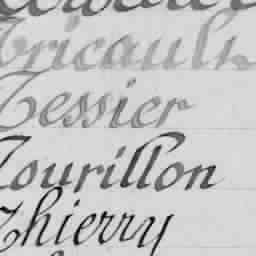 Tricault
Tessier
Tourillon
Thierry